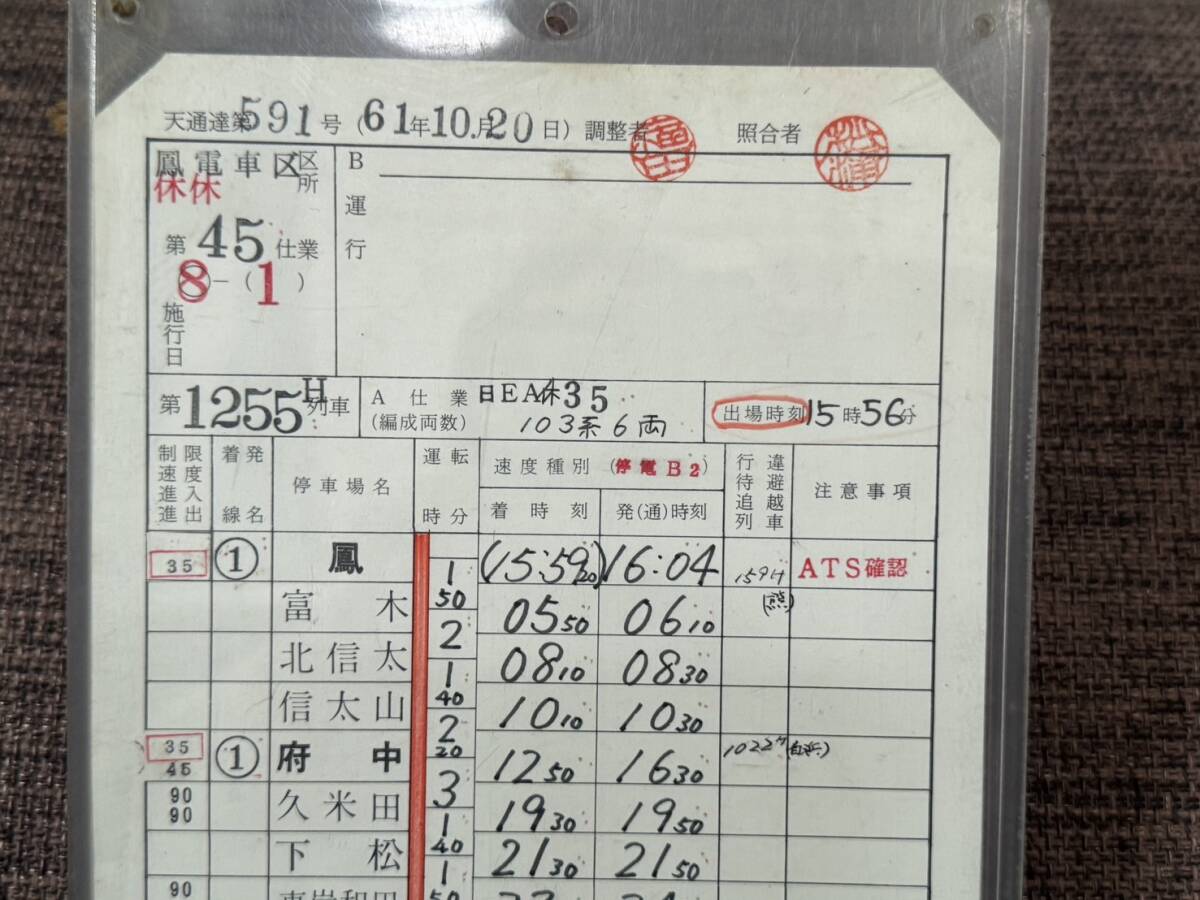 天通達第591号(61年10月20日)調整者 照合者
鳳電車区 区所
休休
第45仕業
8-(1)
施行日
B運行
第1255H列車
A仕業 日EA休435
(編成両数) 103系6両
出場時刻 15時56分
制限速度 進入進出
着発線名
停車場名
運転時分
速度種別(停電B2)
着時刻 発(通)時刻
行違待避追越列車
注意事項
35 ① 鳳 1 (15:5920) 16:04 159H ATS確認
50
富木 0550 0610
2
北信太 0810 0830
1
40
信太山 1010 1030
2
20
35
45 ① 府中 1250 1630 1022H
3
90
90 久米田 1930 1950
1
40
下松 2130 2150
1
50
90 東岸和田